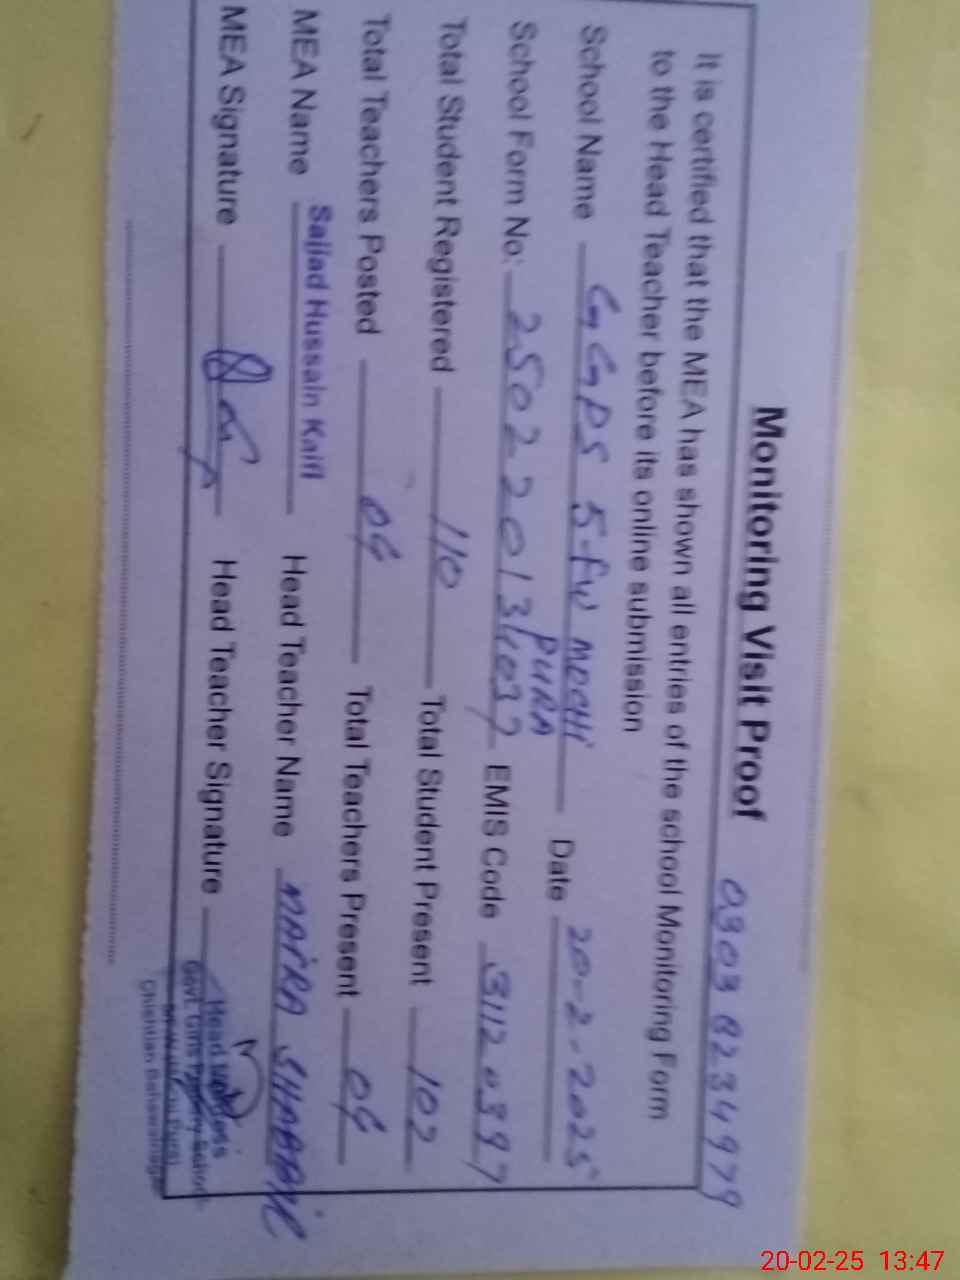 Monitoring Visit Proof 0303 8234979
It is certified that the MEA has shown all entries of the school Monitoring Form
to the Head Teacher before its online submission
School Name GGPS 5-FW MOCHI PURA Date 20-2-2025
School Form No: 2502201340 EMIS Code 31120397
Total Student Registered 110 Total Student Present 102
Total Teachers Posted 04 Total Teachers Present 04
MEA Name Sajjad Hussain Kaifi Head Teacher Name MAIRA SHABBIR
MEA Signature Head Teacher Signature
Head
Govt. Girls Primary School
Chishtian Bahawalnagar
20-02-25 13:47